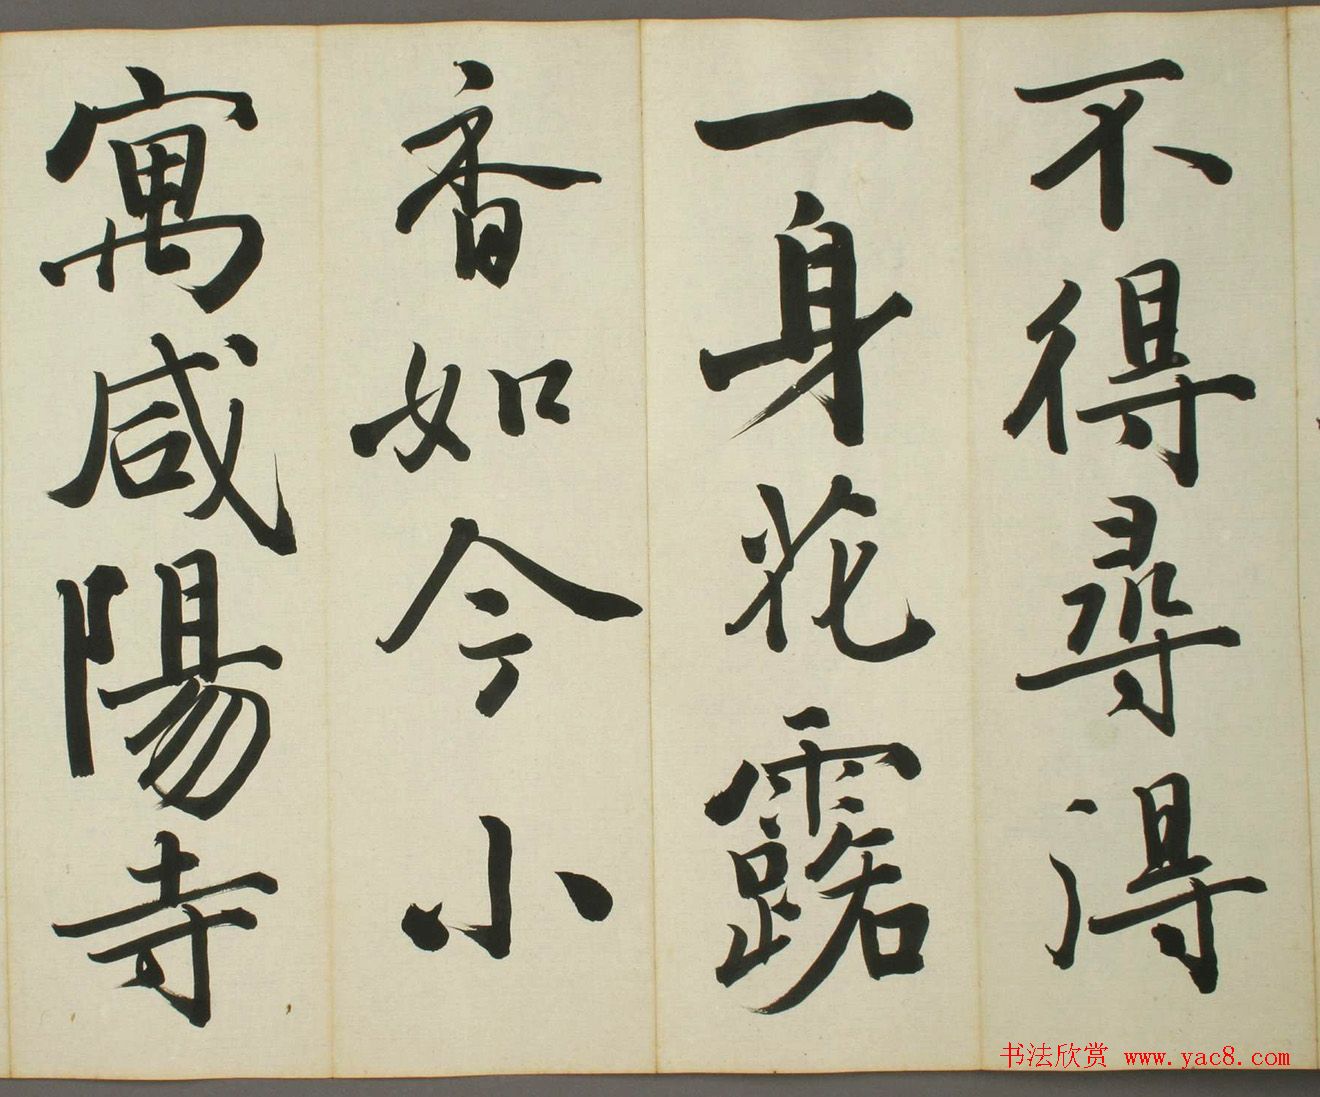 不得尋得
一身花露
香如今小
寓咸陽寺
书法欣赏 www.yac8.com